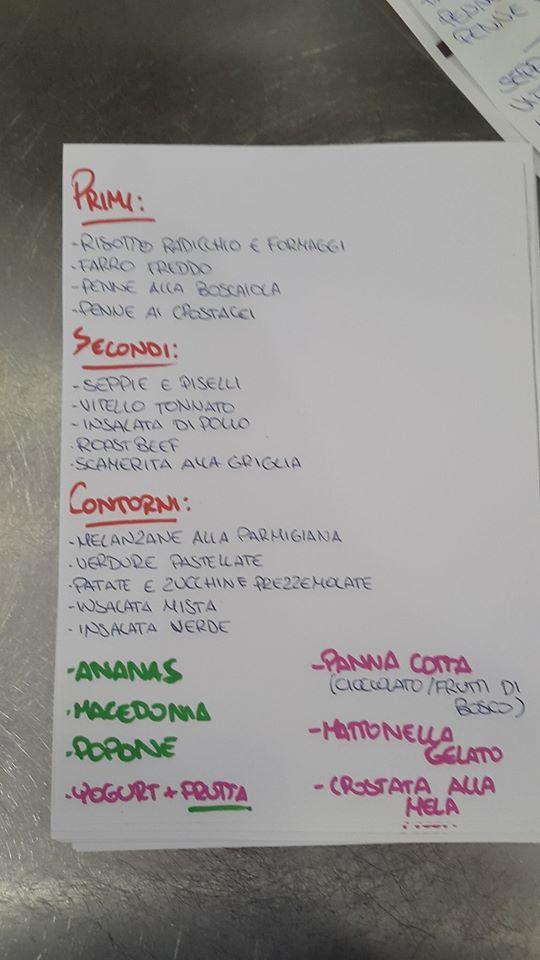 PRIMI:
- RISOTTO RADICCHIO E FORMAGGI
- FARRO FREDDO
- PENNE ALLA BOSCAIOLA
- PENNE AI CROSTACEI
SECONDI:
- SEPPIE E PISELLI
- VITELLO TONNATO
- INSALATA DI POLLO
- ROAST BEEF
- SCAMERITA ALLA GRIGLIA
CONTORNI:
- MELANZANE ALLA PARMIGIANA
- VERDURE PASTELLATE
- PATATE E ZUCCHINE PREZZEMOLATE
- INSALATA MISTA
- INSALATA VERDE
- ANANAS
- MACEDONIA
- POPONE
- YOGURT + FRUTTA
- PANNA COTTA
(CIOCCOLATO/FRUTTI DI
BOSCO)
- MATTONELLA
GELATO
- CROSTATA ALLA
MELA
PENNE